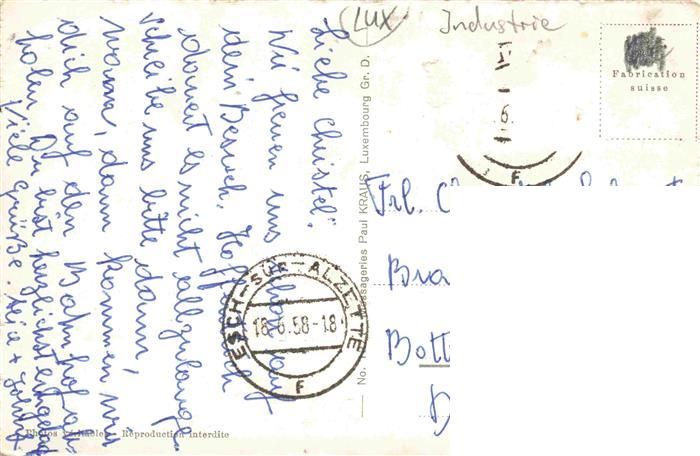 LUX
Industrie
Fabrication
suisse
Liebe Christel!
Wir freuen uns schon auf
dein Besuch. Hoffentlich
dauert es nicht allzulange.
Schreibe uns bitte dann,
wann, dann kommen wir
dich auf den Bahnhof ab-
holen. Du bist herzlichst eingeladen
Viele Grüße.
Messageries Paul KRAUS, Luxembourg Gr. D.
No.
ESCH-SUR-ALZETTE
18.6.58-18
F
6.
F
Frl.
Bra
Bott
Photos véritables - Reproduction interdite